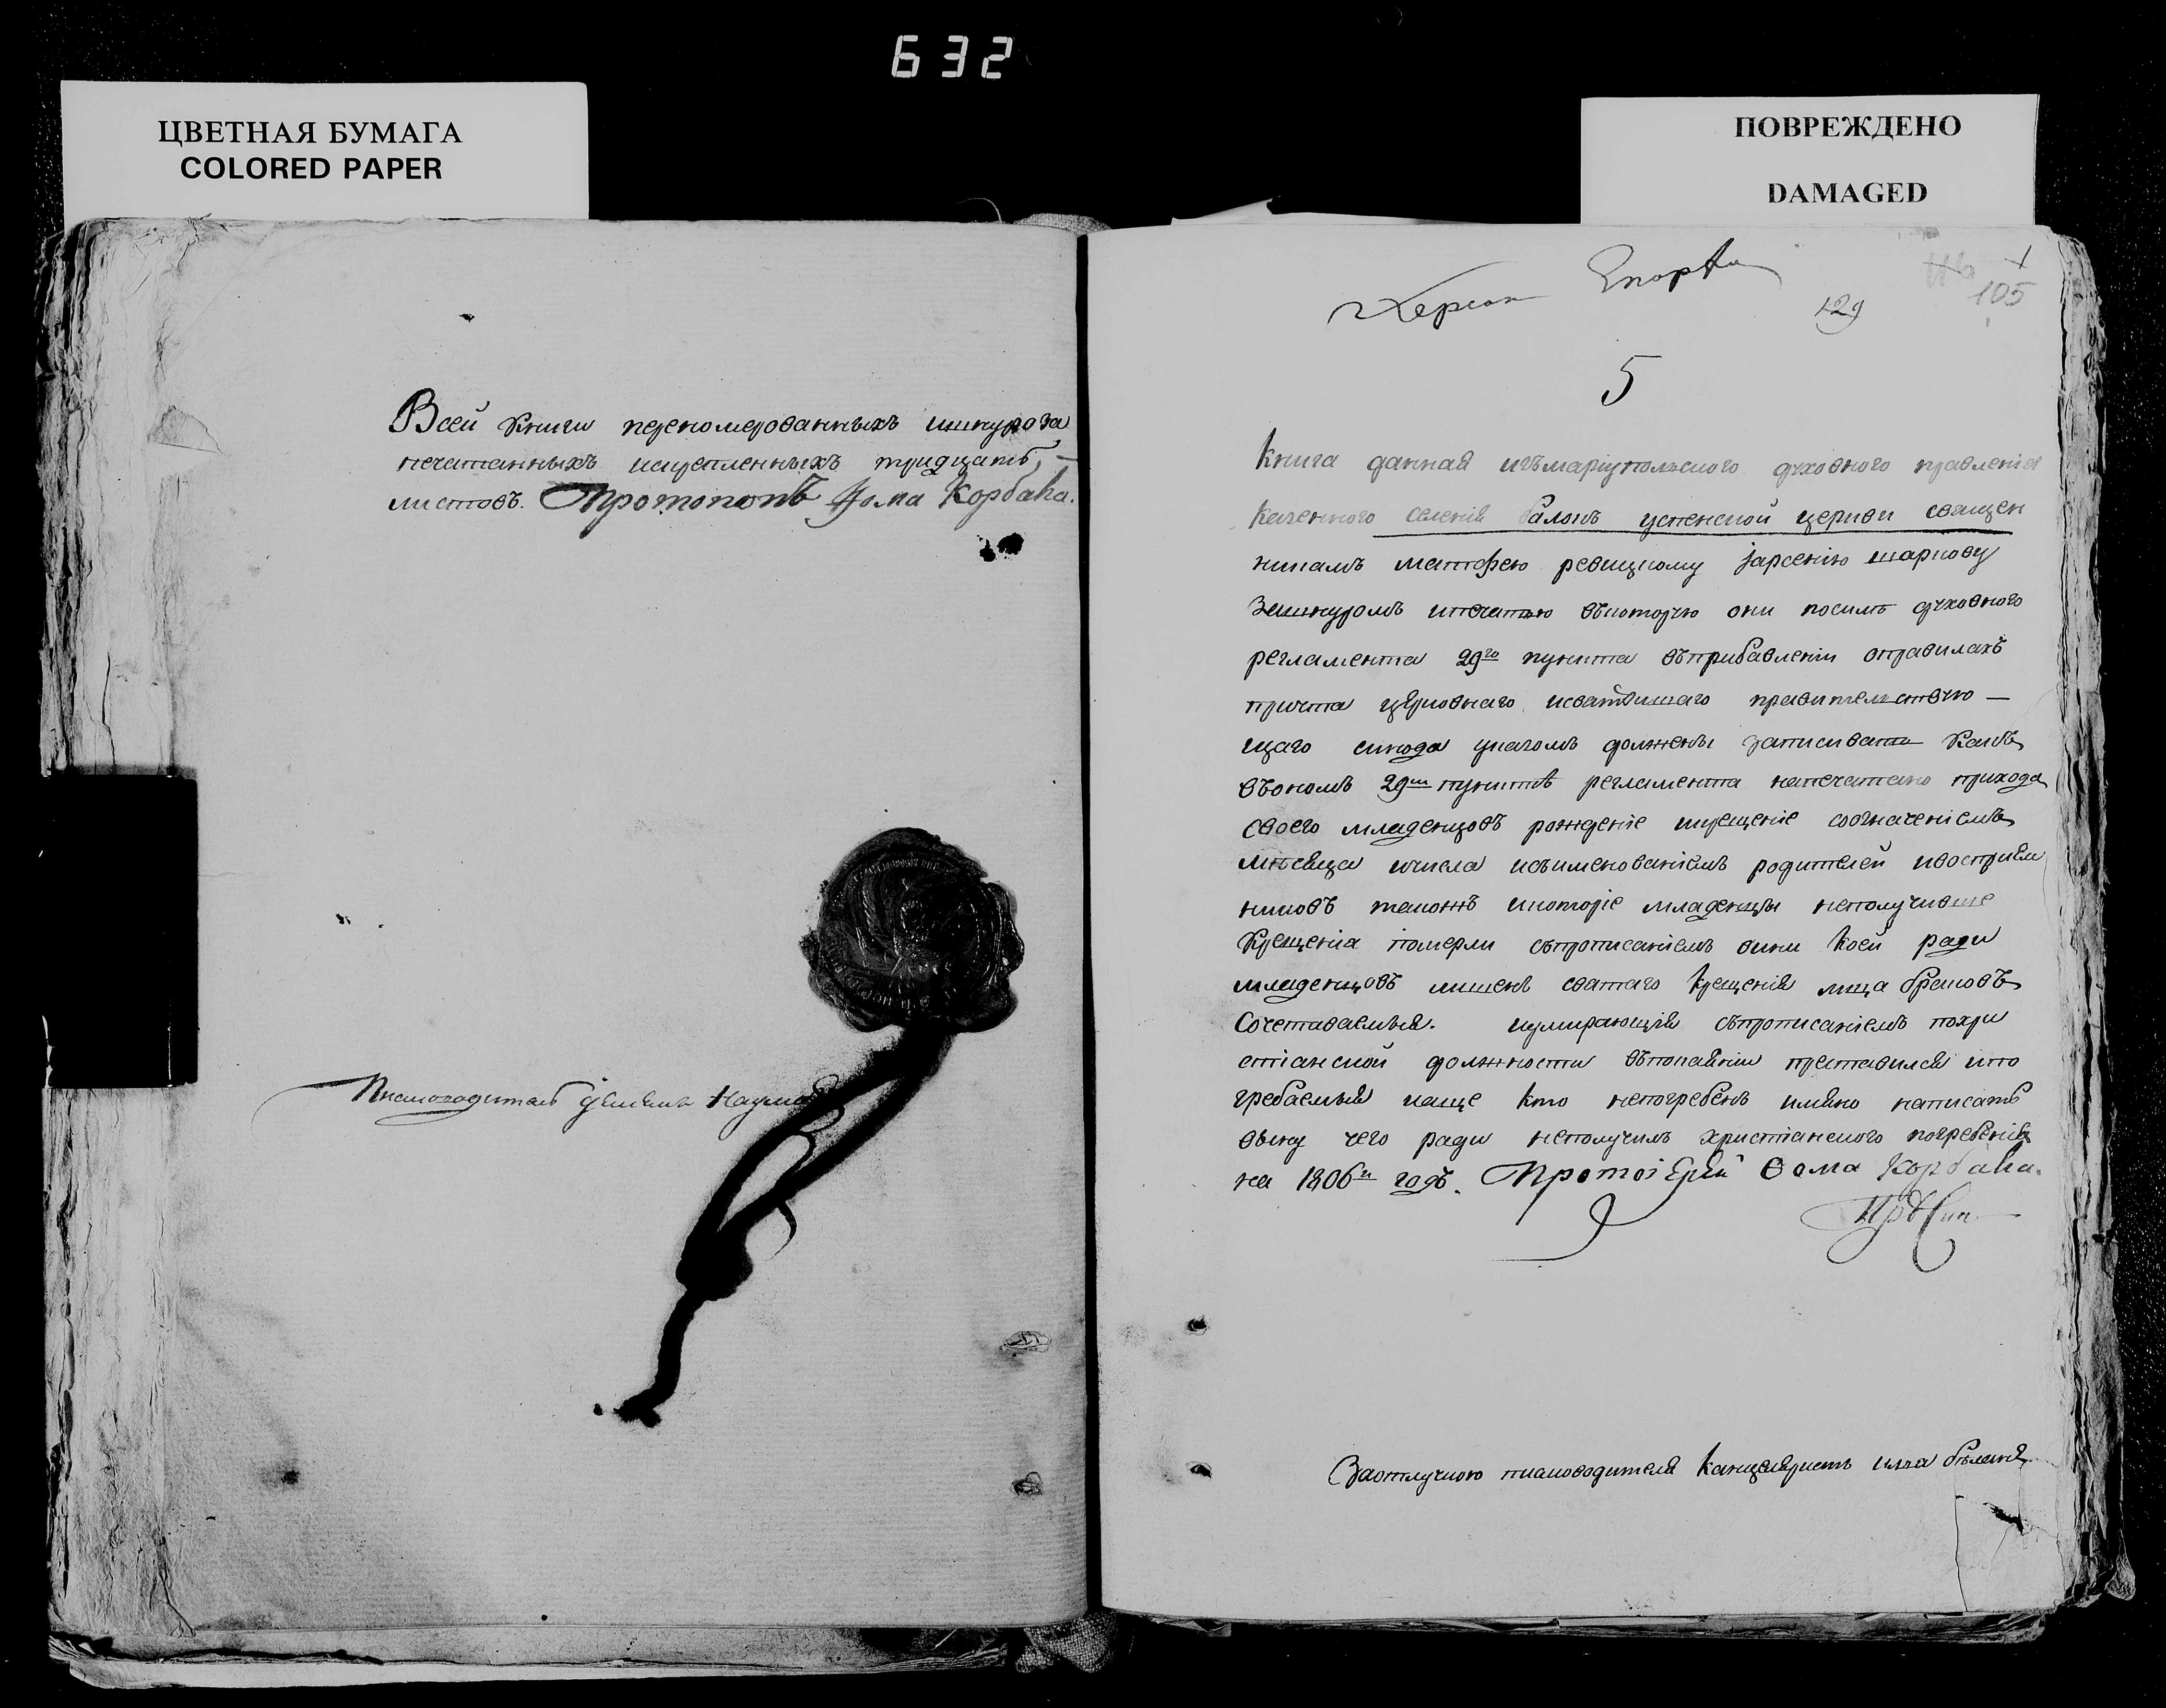 632
ЦВЕТНАЯ БУМАГА
COLORED PAPER
ПОВРЕЖДЕНО
DAMAGED
Всей книги переномерованныхъ ишнуроза
печатанныхъ искрепленныхъ тридцать
листовъ. Протопопъ Фома Корбака.
Писмоводитель Демьянъ
129
105
5
Книга данная изъмариупольского духовного правления
Казенного селения успенской церкви священ
никамъ матфею ревицкому іарсению шаркову
Зашнуромъ ипечатью въкоторую они посилѣ духовного
регламента 29го пункта въприбавлении оправилахъ
причта церковнаго исвятѣишаго правительствую —
щаго синода указомъ должены записивать какъ
въономъ 29мъ пунктѣ регламента напечатано прихода
своего младенцовъ рождение икрещение созначениемъ
мѣсяца ичисла исъименованиемъ родителей ивосприем
никовъ такожъ икоторіе младенцы неполучивше
Крещения померли съпрописаниемъ вини коей ради
младенцовъ лишенъ святаго крещения лица браковъ
Сочетаваемыя. иумирающия съпрописаниемъ похри
стіанской должности въпокаянии преставился ипо
гребаемыя иаще кто непогребенъ имяно написать
вину чего ради неполучилъ христіанского погребения
на 1806й годъ. Протоіерей Ѳома Корбака.
Заотлучкою писмоводителя Канцеляристъ илла